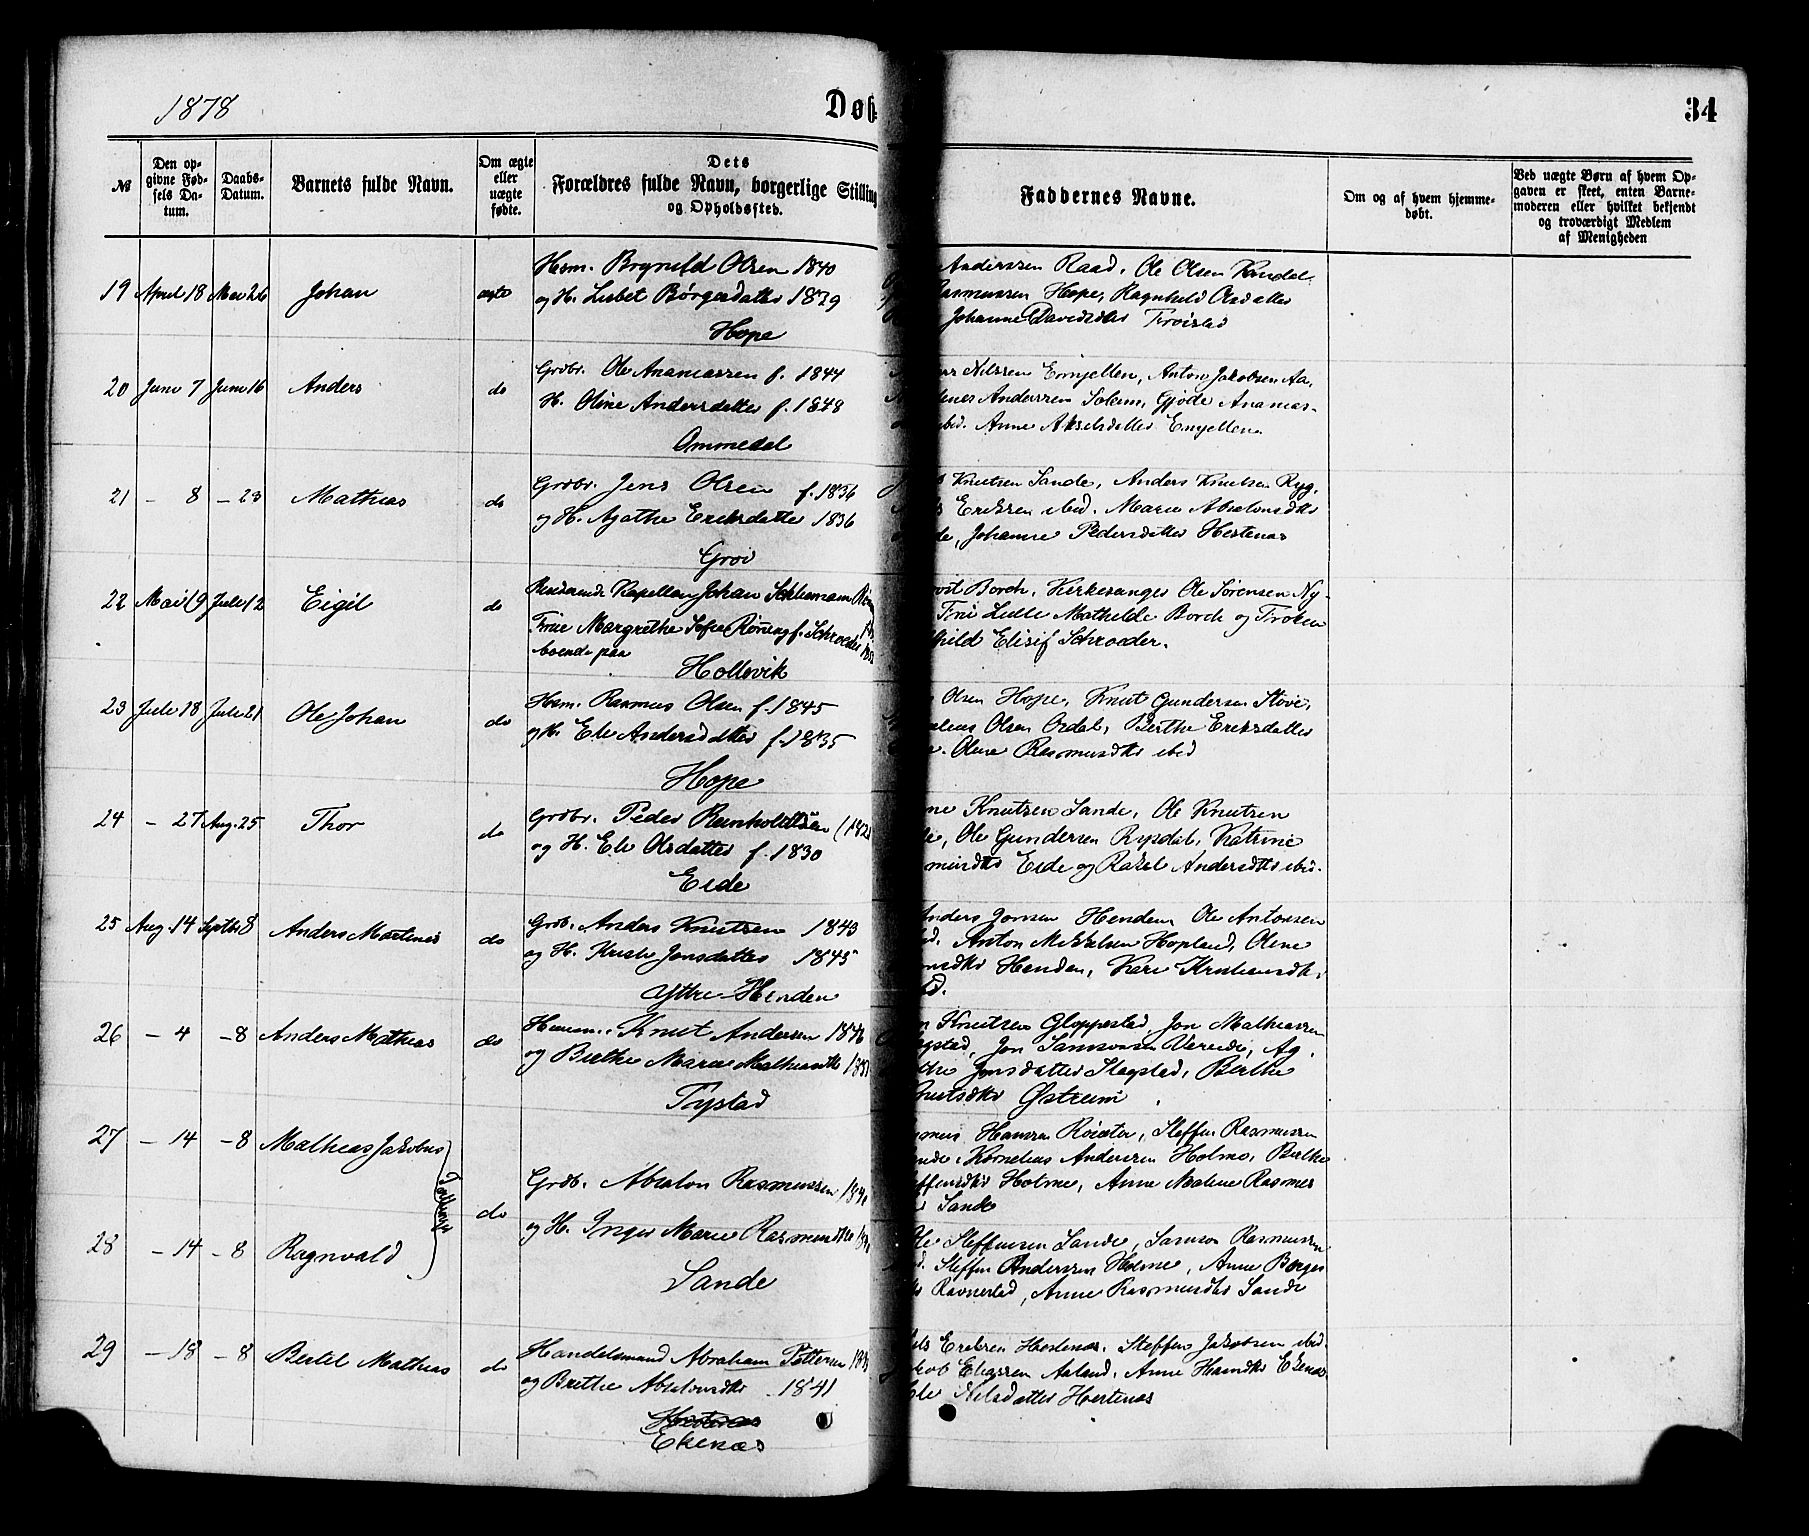 1878
Døb
34
№
Den op-
givne Fød-
sels Da-
tum.
Daabs-
Datum.
Barnets fulde Navn.
Om ægte
eller
uægte
fødte.
Dets
Forældres fulde Navn, borgerlige Stilling
og Opholdssted.
Faddernes Navne.
Om og af hvem hjemme-
døbt.
Ved uægte Børn af hvem Op-
gaven er skeet, enten Barne-
moderen eller hvilket bekjendt
og troværdigt Medlem
af Menigheden
19 April 18 Mai 26 Johan ægte
Hsm. Brynild Olsen 1840
og H. Lisbet Børgesdatter 1839
Hope
Anderssen Raad, Ole Olsen
Rasmussen Hope, Ragnhild Olsdatter
Johanne Davidsdtr
20 Juni 7 Juni 16 Anders do
Grdbr. Ole Ananiassen f. 1844
H. Oline Andersdatter f. 1848
Ommedal
Nilssen Emjellen, Anton Jakobsen Aa,
Anderssen Solem, Gjøde Ananias-
ibid. Anne Akselsdatter Emjellen
21 – 8 – 23 Mathias do
Grdbr. Jens Olsen f. 1836
og H. Agathe Eriksdatter 1836
Groi
Knutsen Sande, Anders Knutsen Ryg,
Eriksen ibid. Marie Absalonsdtr
Johanne Pedersdatter Hestenæs
22 Mai 19 Juli 12 Eigil do
Residerende Kapellan Johan
Frue Margrethe Sofie Røning f. Schroeder
boende paa
Hollevik
Borch, Kirkesanger Ole Sørensen Ny-
Fru Lulle Mathilde Borch og Frøken
Elisif Schroeder.
23 Juli 18 Juli 21 Ole Johan do
Hsm. Rasmus Olsen f. 1845
og H. Eli Andersdatter f. 1835
Hope
Olsen Hope, Knut Gundersen Støve,
Olsen Ordal, Berthe Eriksdatter
Oline Rasmusdtr ibid
24 – 27 Aug. 25 Thor do
Grdbr. Peder Reinholdtsen
og H. Eli Olsdatter f. 1830
Eide
Knutsen Sande, Ole Knutsen
Ole Gundersen Rysdal, Katrine
Eide og Rakel Andersdtr ibid.
25 Aug. 14 Septbr 8 Anders Martinus do
Grdb. Anders Knutsen 1843
og H. Kristi Jonsdatter 1845
Ytre Henden
Anders Jonsen Henden Ole Antonsen
Anton Mikkelsen Hopland, Oline
Henden, Kari
26 – 4 – 8 Anders Mathias do
Knut Andersen
og Berthe Marie Mathiasdtr
Tystad
Knutsen Gloppestad, Jon Mathiassen
Jon Samsonsen Vereide, Ag.
Jonsdatter Slagstad, Berthe
Østreim
27 – 14 – 8 Mathias Jakobus
Tvillinger
do
Grdb. Absalon Rasmussen
Hansen Røiseter, Steffen Rasmussen
Kornelius Andersen Holme, Berthe
Holme, Anne Malene Rasmus
Sande
28 – 14 – 8 Ragnvald
og H. Inger Marie Rasmusdtr
Sande
Ole Steffensen Sande, Samson Rasmussen
Steffen Anderssen Holme, Anne Børges
Ravnestad, Anne Rasmusdtr Sande
29 – 18 – 8 Bertel Mathias do
Handelsmand Abraham Pettersen
og Berthe Absalonsdtr 1841
Hestenæs
Ekenæs
Eriksen Hestenæs, Steffen Jakobsen ibid.
Eliassen Aaland, Anne Hansdtr Ekenæs
Nilsdatter Hestenæs